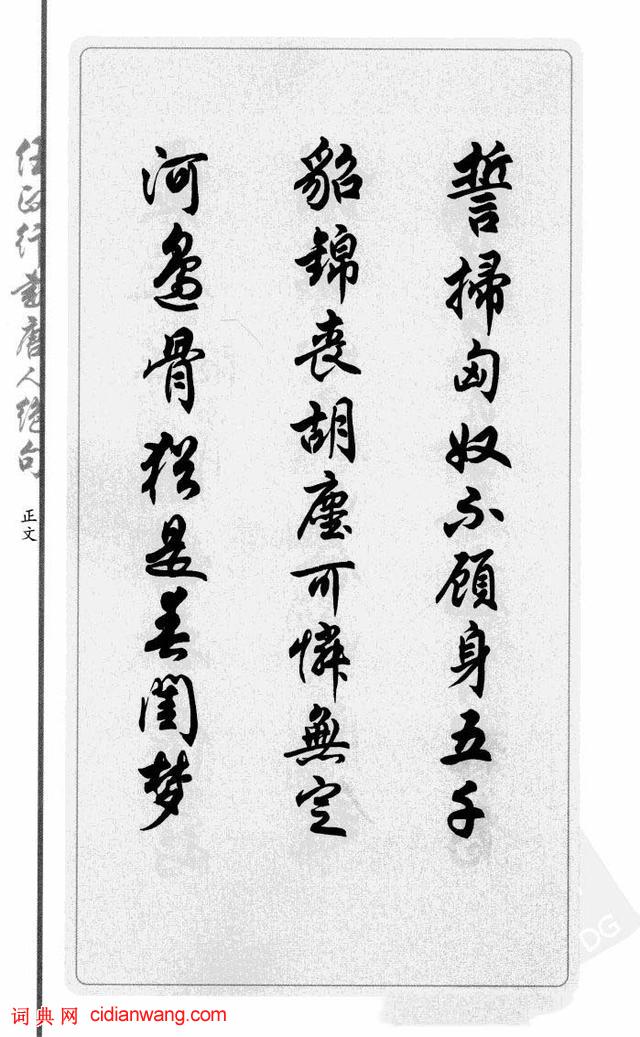 誓掃匈奴不顧身五千
貂錦喪胡塵可憐無定
河邊骨猶是春閨梦
任政行书唐人绝句
正文
词典网 cidianwang.com
DG